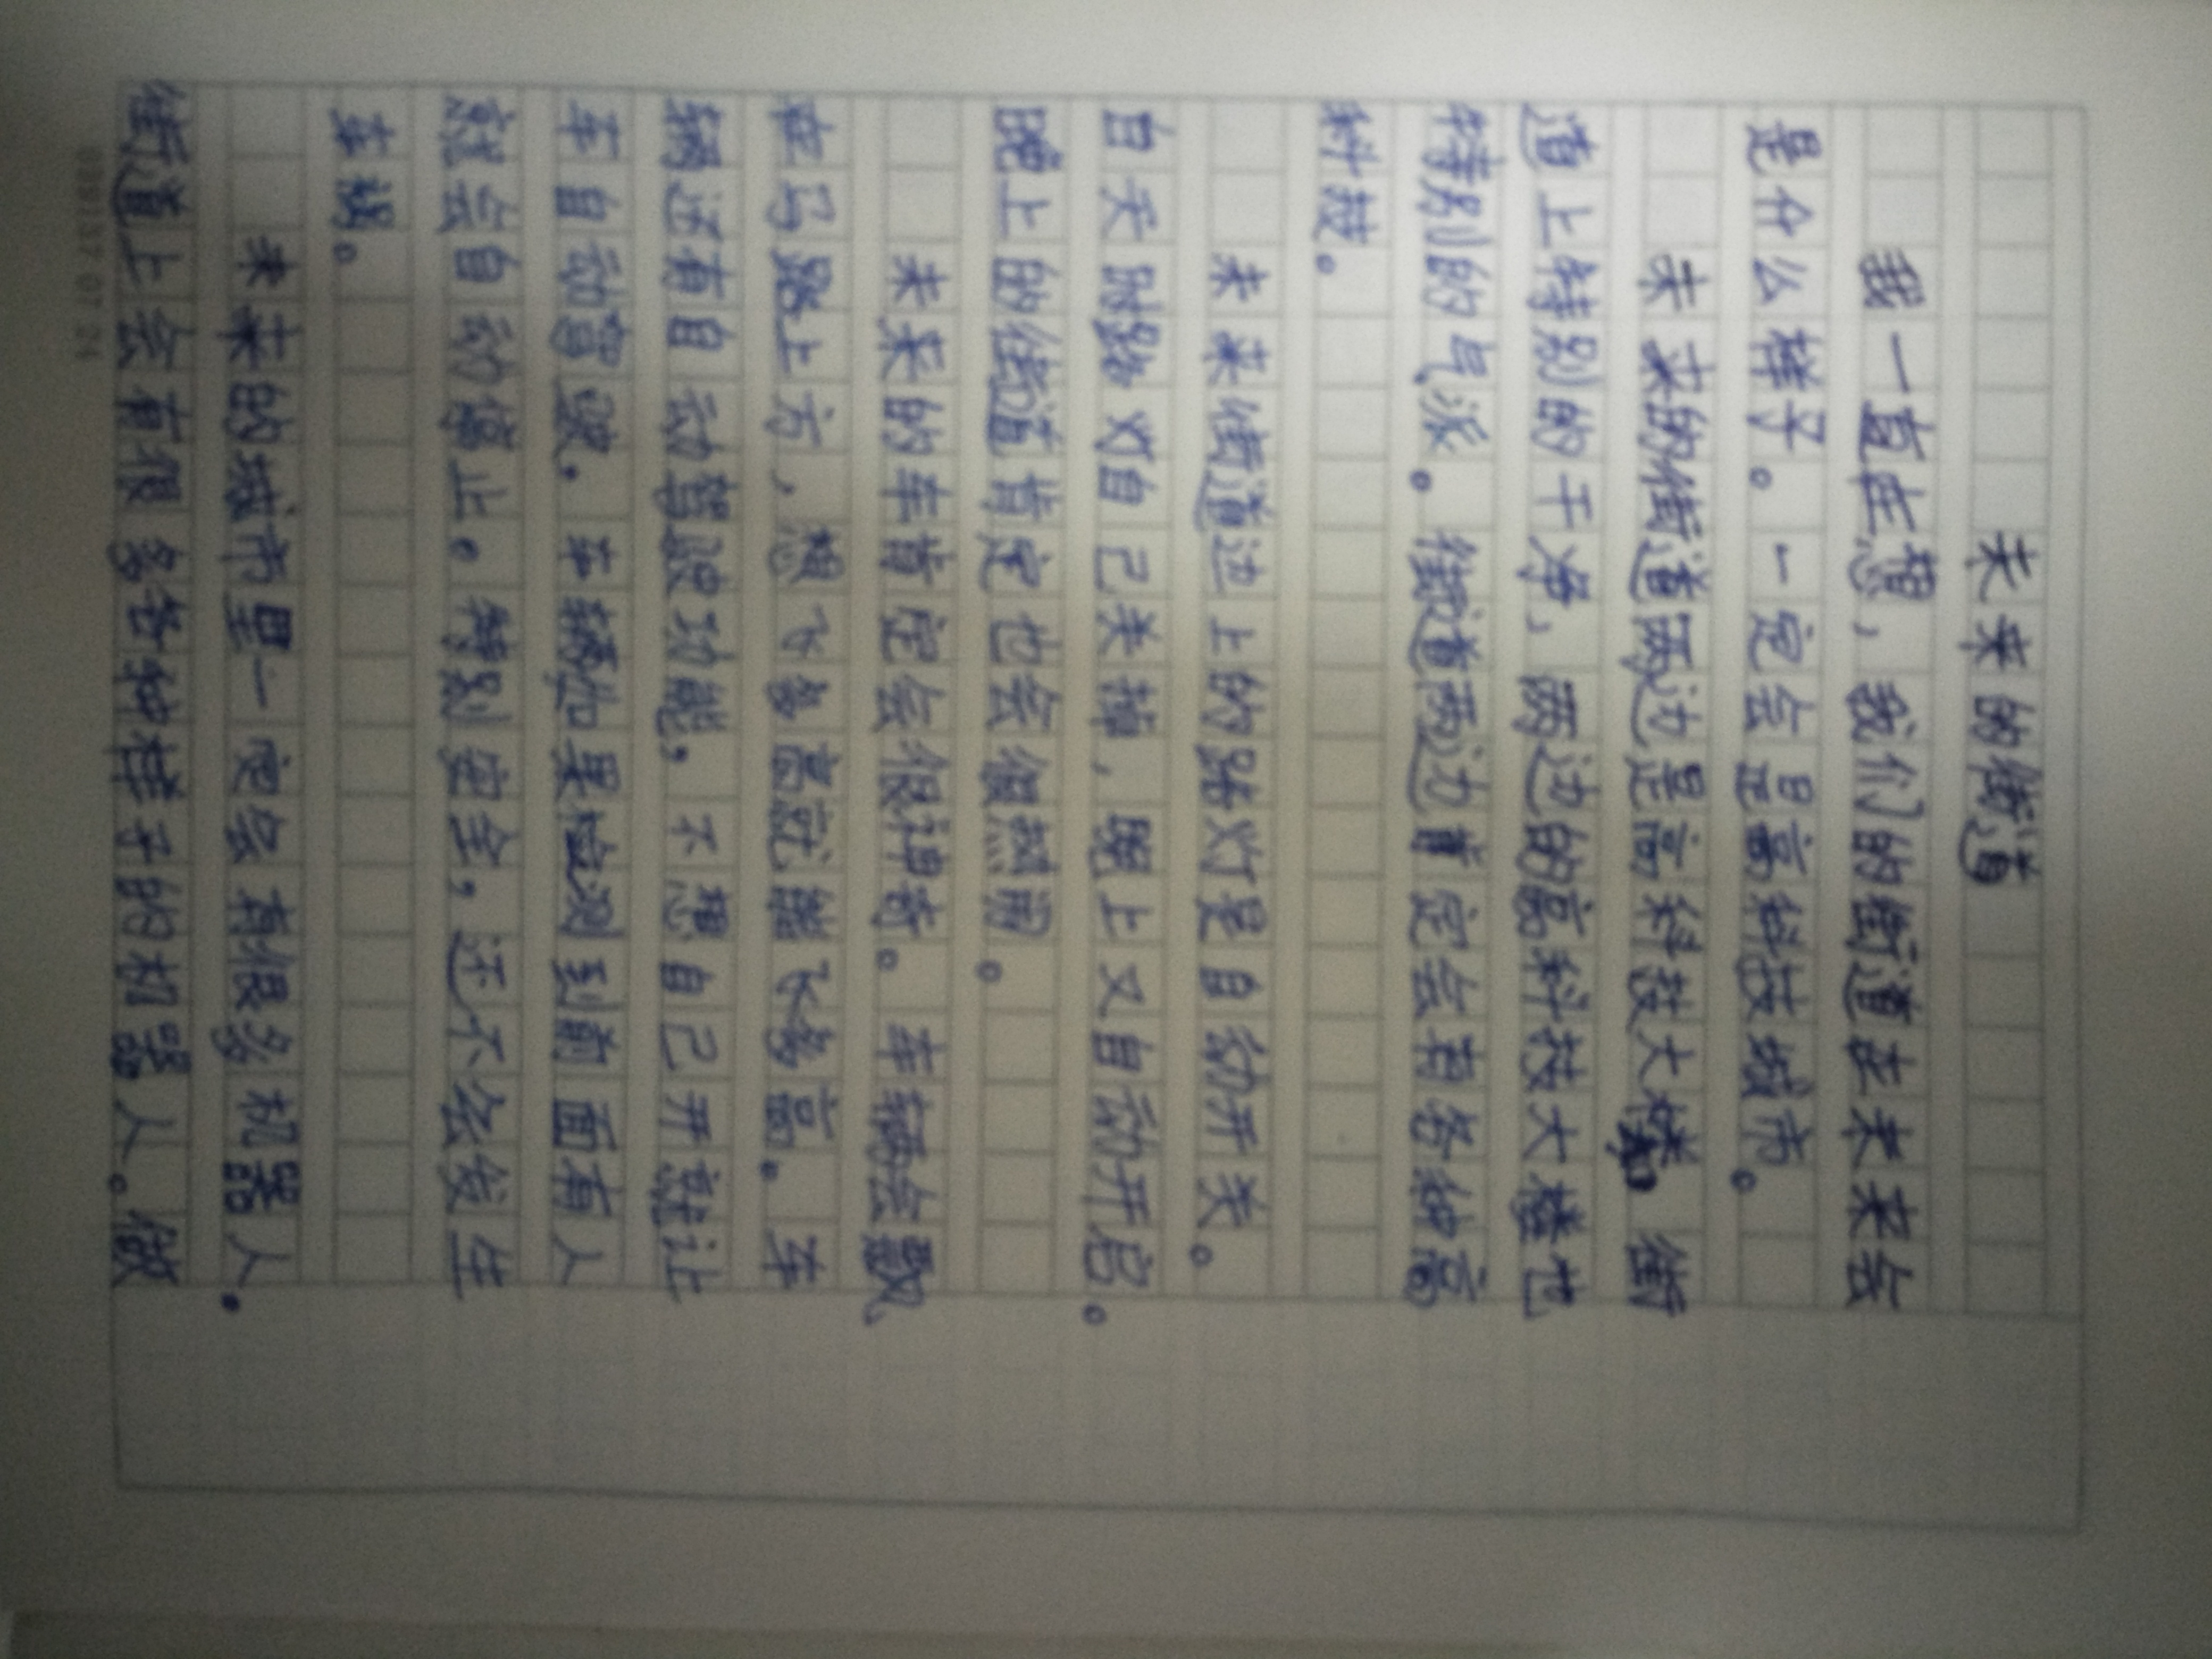 未来的街道
我一直在想，我们的街道在未来会
是什么样子。一定会是高科技城市。
未来的街道两边是高科技大楼，街
道上特别的干净，两边的高科技大楼也
特别的气派。街道两边肯定会有各种高
科技。
未来街道边上的路灯是自动开关。
白天时路灯自己关掉，晚上又自动开启。
晚上的街道肯定也会很热闹。
未来的车肯定会很神奇。车辆会飘
在马路上方，想飞多高就能飞多高。车
辆还有自动驾驶功能，不想自己开就让
车自动驾驶。车辆如果检测到前面有人
就会自动停止。特别安全，还不会发生
车祸。
未来的城市里一定会有很多机器人。
街道上会有很多各种样子的机器人。做